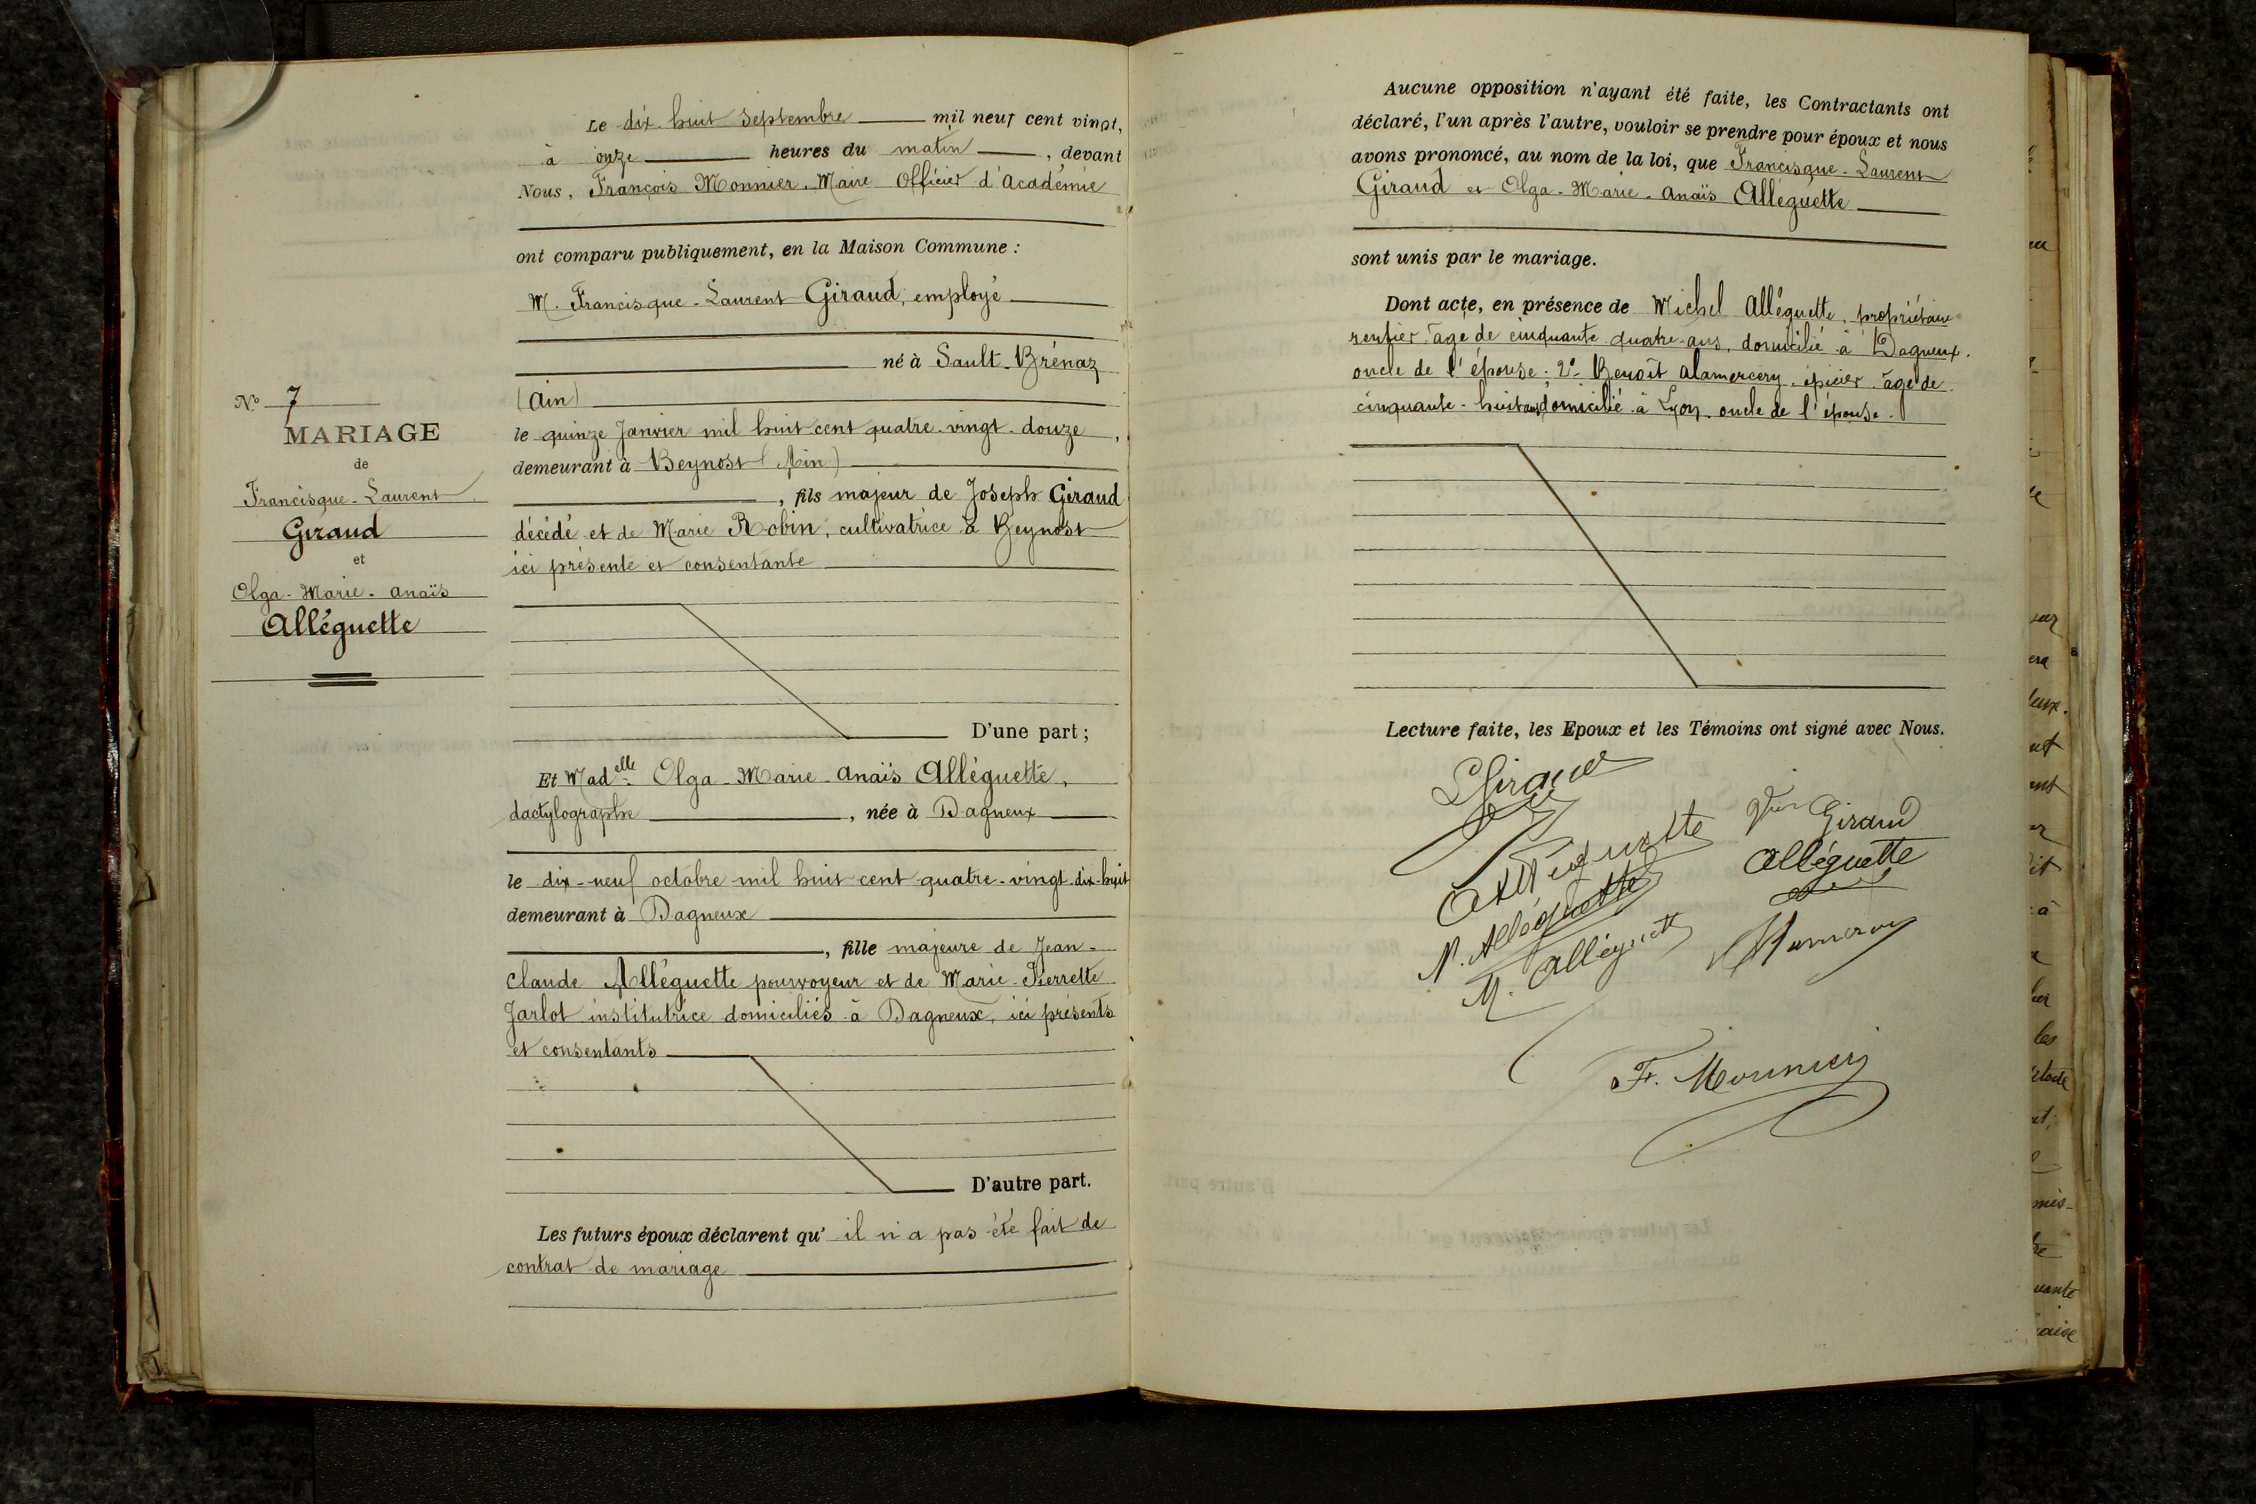 Le dix-huit septembre mil neuf cent vingt,
à onze heures du matin, devant
Nous, François Monnier, Maire Officier d'Académie
ont comparu publiquement, en la Maison Commune :
M. Francisque-Laurent Giraud, employé
né à Sault-Brénaz
(Ain)
le quinze Janvier mil huit cent quatre-vingt-douze,
demeurant à Beynost (Ain)
, fils majeur de Joseph Giraud
décédé et de Marie Robin, cultivatrice à Beynost
ici présente et consentante
D'une part ;
Et Madelle Olga-Marie-Anaïs Alléguette,
dactylographe, née à Dagneux
le dix-neuf octobre mil huit cent quatre-vingt-dix-huit
demeurant à Dagneux
, fille majeure de Jean-
Claude Alléguette pourvoyeur et de Marie-Pierrette
Jarlot institutrice domiciliés à Dagneux, ici présents
et consentants
D'autre part.
Les futurs époux déclarent qu'il n'a pas été fait de
contrat de mariage
No 7
MARIAGE
de
Francisque-Laurent
Giraud
et
Olga-Marie-Anaïs
Alléguette
Aucune opposition n'ayant été faite, les Contractants ont
déclaré, l'un après l'autre, vouloir se prendre pour époux et nous
avons prononcé, au nom de la loi, que Francisque-Laurent
Giraud et Olga-Marie-Anaïs Alléguette
sont unis par le mariage.
Dont acte, en présence de Michel Alléguette, propriétaire
rentier, âgé de cinquante-quatre ans, domicilié à Dagneux.
oncle de l'épouse ; 2° Benoît Alamercery, épicier, âgé de
cinquante-huit ans domicilié à Lyon, oncle de l'épouse.
Lecture faite, les Epoux et les Témoins ont signé avec Nous.
LGiraud
Alléguette
Giraud
Alléguette
N. Alléguette
M. Alléguette
F. Monnier